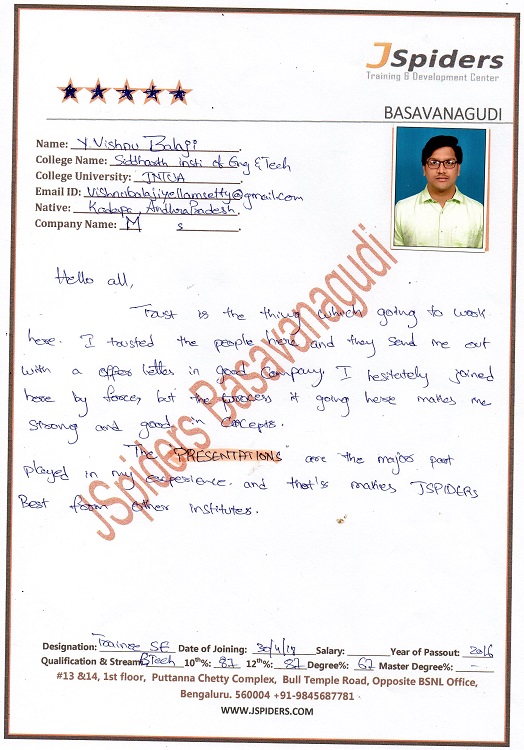 JSpiders
Training & Development Center
BASAVANAGUDI
Name: Y. Vishnu Balaji
College Name: Siddharth Insti of Eng & Tech
College University: JNTUA
Email ID: Vishnubalajiyellamsetty@gmail.com
Native: Kadapa, Andhra Pradesh.
Company Name: M s
Hello all,
Trust is the thing which going to work
here. I trusted the people here and they send me out
with a offer letter in good Company. I hesitately joined
here by force, but the process it going here makes me
strong and good in Concepts.
The "PRESENTATIONS" are the major part
played in my experience. and that's makes JSPIDERs
Best from other institutes.
JSpiders Basavanagudi
Designation: Trainee SE Date of Joining: 30/4/19 Salary: Year of Passout: 2016
Qualification & Stream: BTech 10th%: 87 12th%: 87 Degree%: 67 Master Degree%: -
#13 &14, 1st floor, Puttanna Chetty Complex, Bull Temple Road, Opposite BSNL Office,
Bengaluru. 560004 +91-9845687781
WWW.JSPIDERS.COM